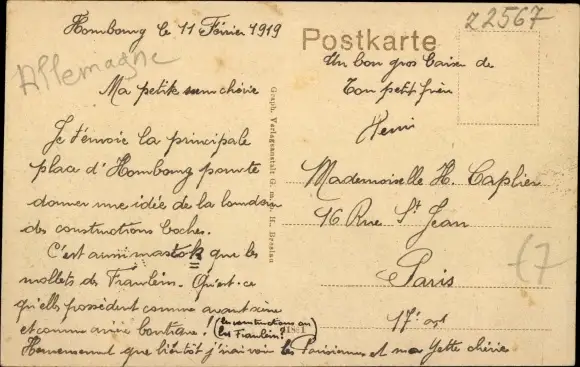 Hombourg le 11 Février 1919
Z2567
Postkarte
Allemagne
Ma petite chérie
Je t'envoie la principale
place d'Hombourg pour te
donner une idée de la lourdeur
des constructions boches.
C'est aussi mastok que les
mollets des Fraulein. Qu'est-ce
qu'elles possèdent comme avant scène
et comme arrière boutique! (les constructions ou
les Fraulein?)
Heureusement que bientôt j'irai voir les Parisiennes et ma Yette chérie
Graph. Verlagsanstalt G. m. b. H., Breslau
Un bon gros baiser de
Ton petit frère
Henri
Mademoiselle H. Caplier
16 Rue St Jean
Paris
17e arrt